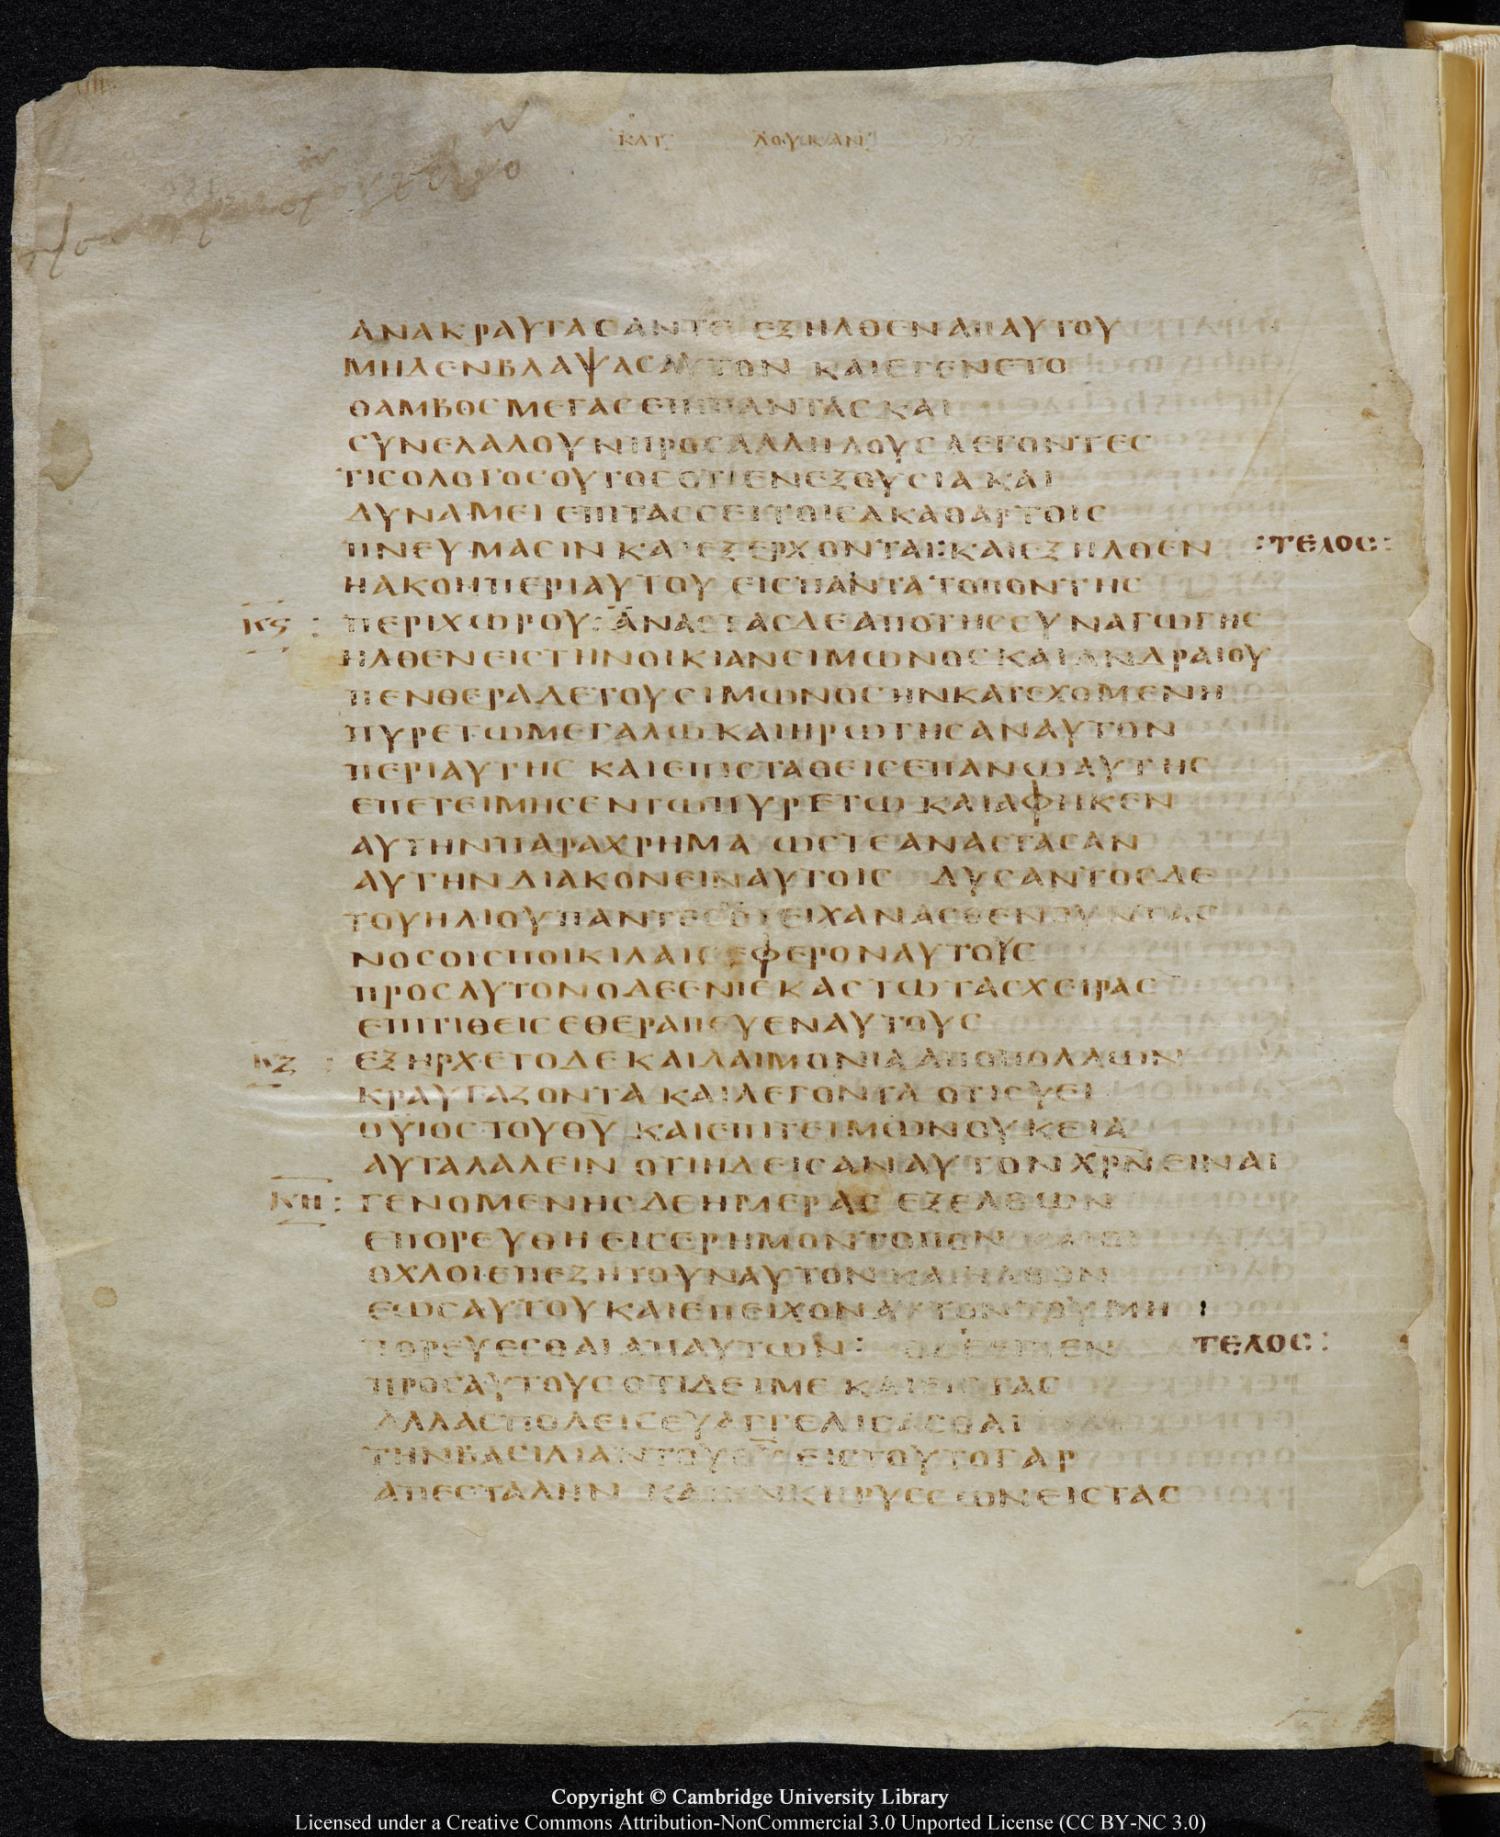 ΚΑΤ ΛΟΥΚΑΝ
ΑΝΑΚΡΑΥΓΑΣΑΝΤΕ ΕΞΗΛΘΕΝΑΠΑΥΤΟΥ
ΜΗΔΕΝΒΛΑΨΑΣΑΥΤΟΝ ΚΑΙΕΓΕΝΕΤΟ
ΘΑΜΒΟΣΜΕΓΑΣΕΠΙΠΑΝΤΑΣΚΑΙ
ΣΥΝΕΛΑΛΟΥΝΠΡΟΣΑΛΛΗΛΟΥΣΛΕΓΟΝΤΕΣ
ΤΙΣΟΛΟΓΟΣΟΥΤΟΣΟΤΙΕΝΕΞΟΥΣΙΑ ΚΑΙ
ΔΥΝΑΜΕΙ ΕΠΙΤΑΣΣΕΙΤΟΙΣΑΚΑΘΑΡΤΟΙΣ
ΠΝΕΥΜΑΣΙΝ ΚΑΙΕΞΕΡΧΟΝΤΑΙ:ΚΑΙΕΞΗΛΘΕΝ :ΤΕΛΟΣ:
ΗΑΚΟΗΠΕΡΙΑΥΤΟΥ ΕΙΣΠΑΝΤΑΤΟΠΟΝΤΗΣ
ΚϚ : ΠΕΡΙΧΩΡΟΥ: ΑΝΑΣΤΑΣΔΕΑΠΟΤΗΣΣΥΝΑΓΩΓΗΣ
ΗΛΘΕΝΕΙΣΤΗΝΟΙΚΙΑΝΣΙΜΩΝΟΣΚΑΙΑΝΔΡΑΙΟΥ
ΠΕΝΘΕΡΑΔΕΤΟΥΣΙΜΩΝΟΣΗΝΚΑΤΕΧΟΜΕΝΗ
ΠΥΡΕΤΩΜΕΓΑΛΩΚΑΙΗΡΩΤΗΣΑΝΑΥΤΟΝ
ΠΕΡΙΑΥΤΗΣ ΚΑΙΕΠΙΣΤΑΘΕΙΣΕΠΑΝΩΑΥΤΗΣ
ΕΠΕΤΕΙΜΗΣΕΝΤΩΠΥΡΕΤΩ ΚΑΙΑΦΗΚΕΝ
ΑΥΤΗΝΠΑΡΑΧΡΗΜΑ ΩΣΤΕΑΝΑΣΤΑΣΑΝ
ΑΥΤΗΝΔΙΑΚΟΝΕΙΝΑΥΤΟΙΣ ΔΥΣΑΝΤΟΣΔΕ
ΤΟΥΗΛΙΟΥΠΑΝΤΕΣΟΙΕΙΧΑΝΑΣΘΕΝΟΥΝΤΑΣ
ΝΟΣΟΙΣΠΟΙΚΙΛΑΙΣ ΕΦΕΡΟΝΑΥΤΟΥΣ
ΠΡΟΣΑΥΤΟΝΟΔΕΕΝΙΕΚΑΣΤΩΤΑΣΧΕΙΡΑΣ
ΕΠΙΤΙΘΕΙΣΕΘΕΡΑΠΕΥΕΝΑΥΤΟΥΣ
ΚΖ : ΕΞΗΡΧΕΤΟΔΕΚΑΙΔΑΙΜΟΝΙΑΑΠΟΠΟΛΛΩΝ
ΚΡΑΥΓΑΖΟΝΤΑ ΚΑΙΛΕΓΟΝΤΑ ΟΤΙΣΥΕΙ
ΟΥΙΟΣΤΟΥΘΥ ΚΑΙΕΠΙΤΕΙΜΩΝΟΥΚΕΙΑ
ΑΥΤΑΛΑΛΕΙΝ ΟΤΙΗΔΕΙΣΑΝΑΥΤΟΝΧΡΝΕΙΝΑΙ
ΚΗ : ΓΕΝΟΜΕΝΗΣΔΕΗΜΕΡΑΣ ΕΞΕΛΘΩΝ
ΕΠΟΡΕΥΘΗΕΙΣΕΡΗΜΟΝΤΟΠΟΝ
ΟΧΛΟΙΕΠΕΖΗΤΟΥΝΑΥΤΟΝΚΑΙΗΛΘΟΝ
ΕΩΣΑΥΤΟΥΚΑΙΕΠΕΙΧΟΝΑΥΤΟΝΤΟΥΜΗ
ΠΟΡΕΥΕΣΘΑΙΑΠΑΥΤΩΝ: ΟΔΕΕΙΠΕΝ ΤΕΛΟΣ:
ΠΡΟΣΑΥΤΟΥΣΟΤΙΔΕΙΜΕ ΚΑΙΕΙΣΤΑΣ
ΑΛΛΑΣΠΟΛΕΙΣΕΥΑΓΓΕΛΙΣΑΣΘΑΙ
ΤΗΝΒΑΣΙΛΙΑΝΤΟΥΘΥ ΕΙΣΤΟΥΤΟΓΑΡ
ΑΠΕΣΤΑΛΗΝ ΚΑΙΗΝΚΗΡΥΣΣΩΝΕΙΣΤΑΣ
Copyright © Cambridge University Library
Licensed under a Creative Commons Attribution-NonCommercial 3.0 Unported License (CC BY-NC 3.0)